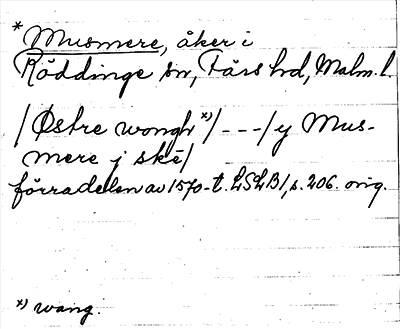 * Musmere, åker i
Röddinge sn, Färs hrd, Malm. l.
/Østre wongh *)/---/y Mus-
mere j ske/
förradelsn av 1570-t. LSLB1, s. 206. orig.
*) wang.